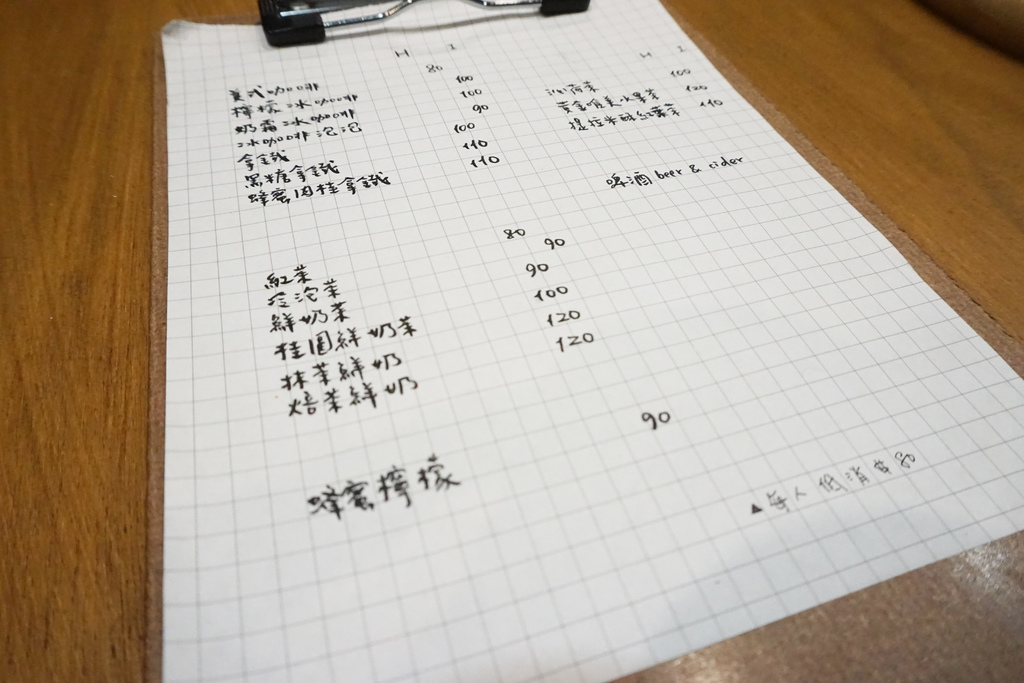 H I
美式咖啡 80
檸檬冰咖啡 100
奶霜冰咖啡 100
冰咖啡泡泡 90
拿鐵 100
黑糖拿鐵 110
蜂蜜肉桂拿鐵 110
紅茶 80
冷泡茶 90
鮮奶茶 90
桂圓鮮奶茶 100
抹茶鮮奶 120
焙茶鮮奶 120
蜂蜜檸檬 90
H I
薄荷茶 100
黃金唯美水果茶 120
提拉米酥紅葉茶 110
啤酒 beer & cider
▲每人低消 80